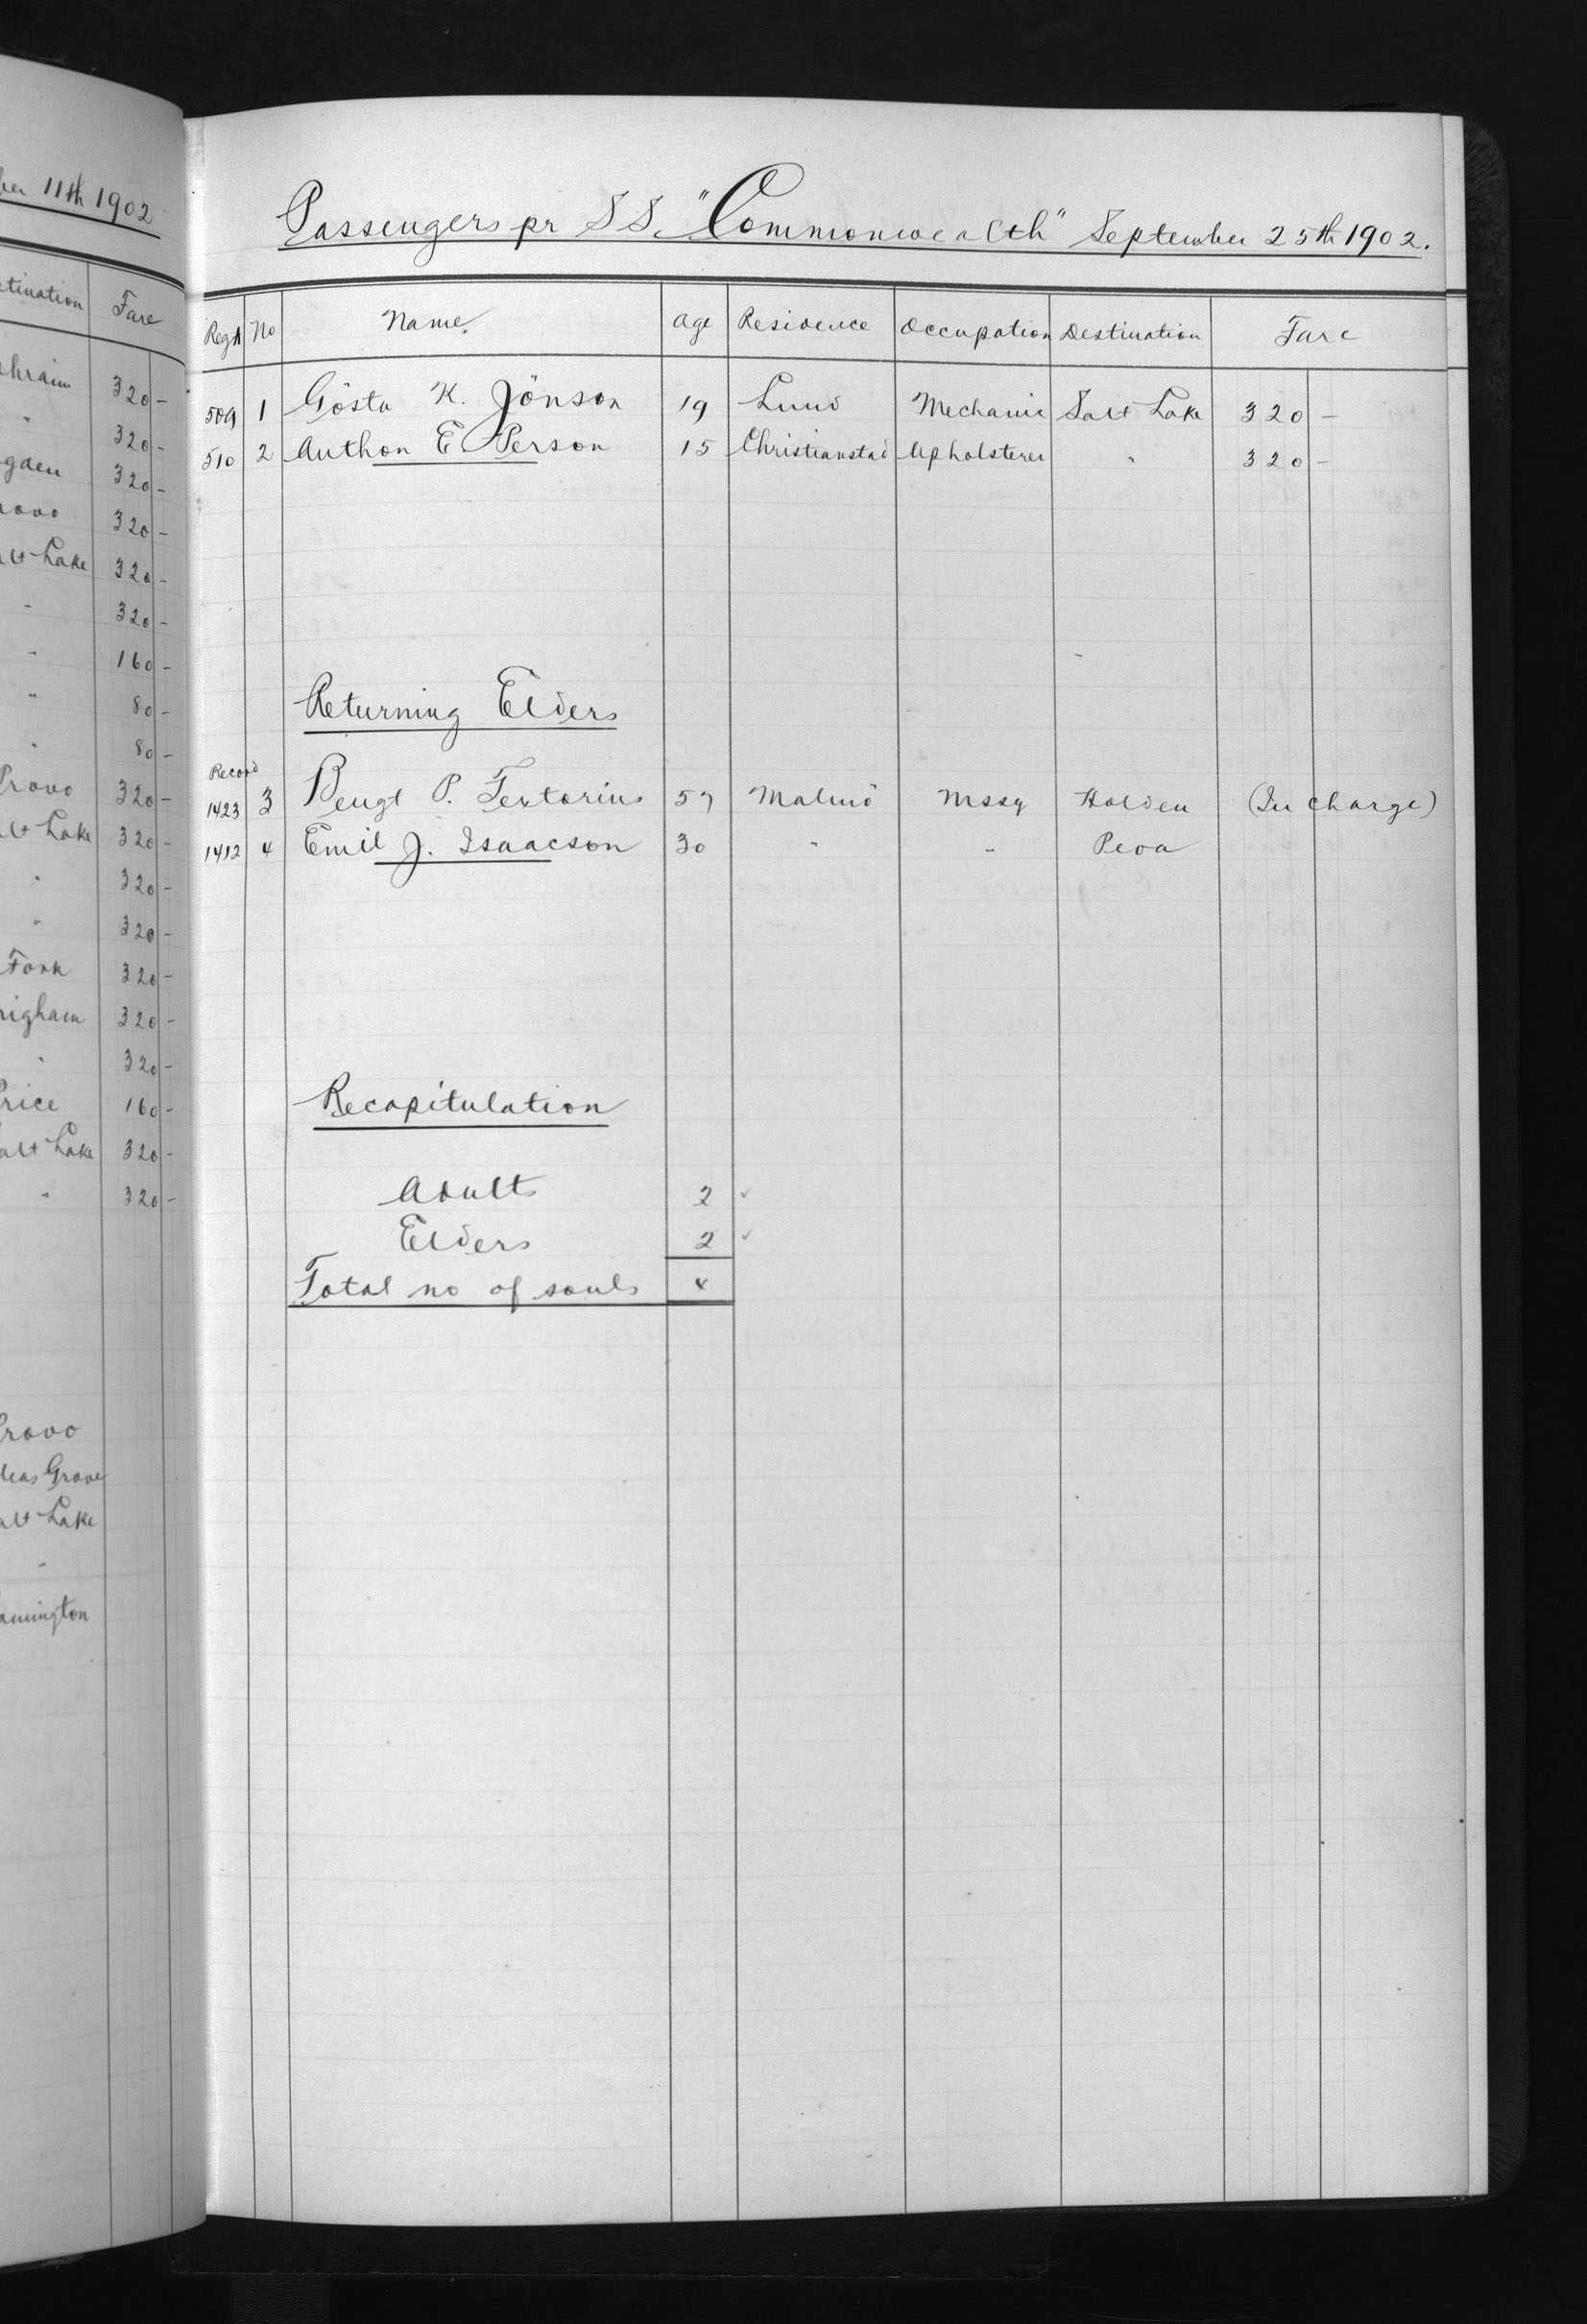 ber 11th 1902
stination Fare
phraim 320 -
" 320 -
gden 320 -
rovo 320 -
alt Lake 320 -
" 320 -
" 160 -
" 80 -
" 80 -
Provo 320 -
alt Lake 320 -
" 320 -
" 320 -
Fork 320 -
righam 320 -
" 320 -
Price 160 -
alt Lake 320 -
" 320 -
Provo
deas Grove
alt Lake
"
armington
Passengers pr S S. "Commonwealth" September 25th 1902.
Regst No Name. Age Residence Occupation Destination Fare
509 1 Gösta K. Jönson 19 Lund Mechanic Salt Lake 320 -
510 2 Anthon E. Person 15 Christianstad Upholsterer " 320 -
Returning Elders
Record
1423 3 Bengt P. Textorius 57 Malmö Mssy Holden (In charge)
1412 4 Emil J. Isaacson 30 " " Peoa
Recapitulation
Adults 2 ✓
Elders 2 ✓
Total no of souls 4